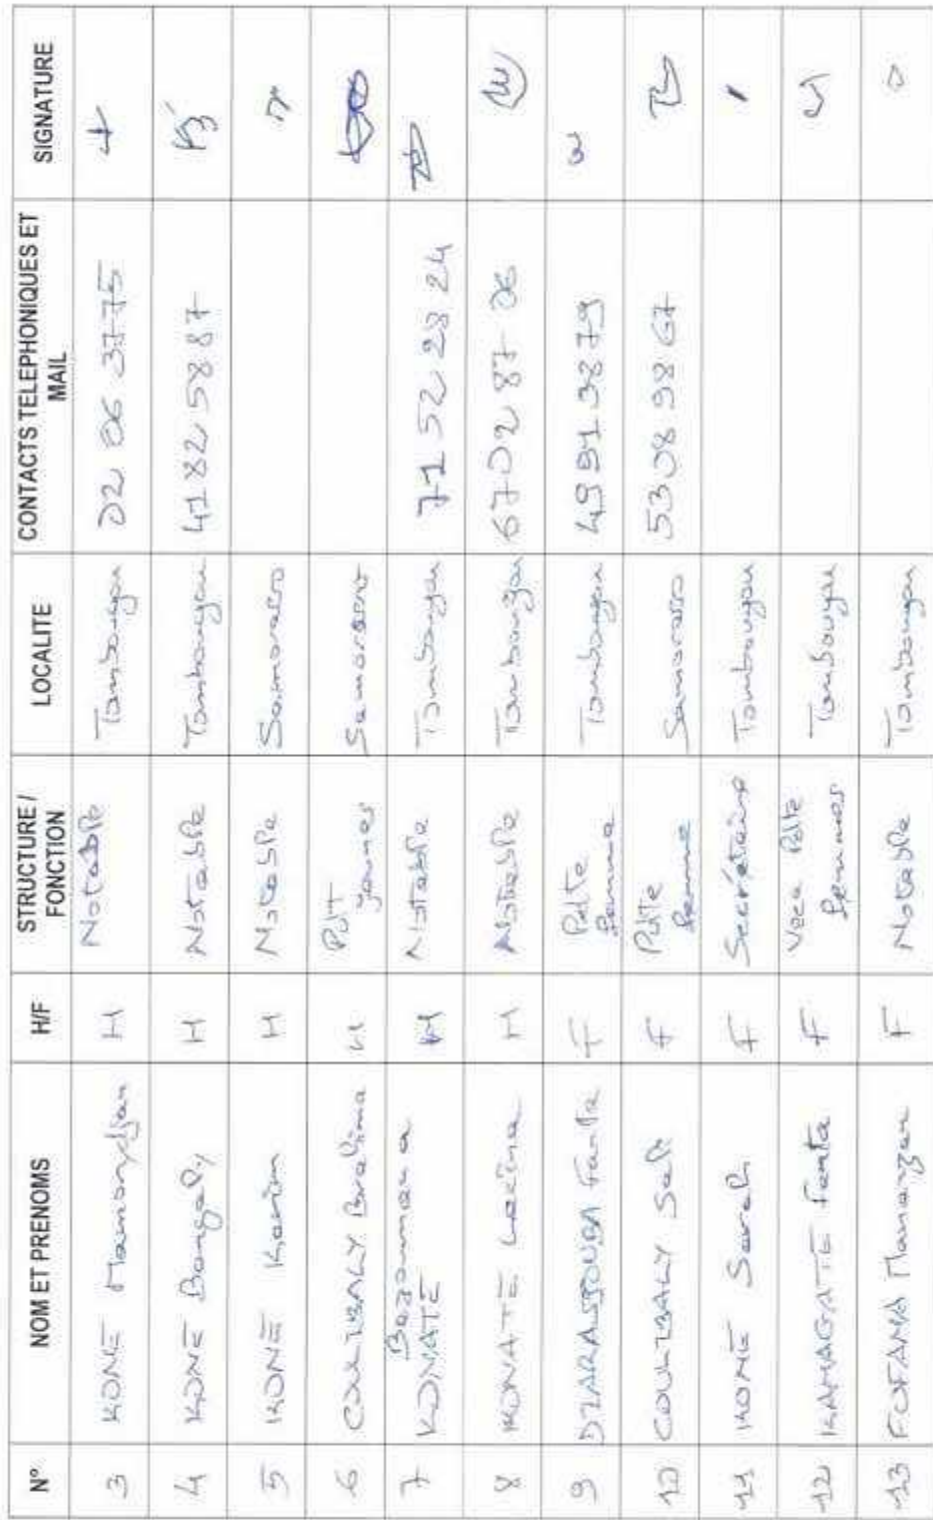 N° NOM ET PRENOMS H/F STRUCTURE / FONCTION LOCALITE CONTACTS TELEPHONIQUES ET MAIL SIGNATURE
3 KONE Mamondjan H Notable Tombougou 02 06 37 75
4 KONE Bangaly H Notable Tombougou 41 82 58 87
5 KONE Karim H Notable Samorosso
6 COULIBALY Brahima H Pdt jeunes Samorosso
7 Bazoumana KONATE H Notable Tombougou 71 52 28 24
8 KONATE Lacina H Notable Tombougou 67 02 87 06
9 DIARASSOUBA Fanta F Pdte femme Tombougou 49 91 38 79
10 COULIBALY Sali F Pdte femme Samorosso 53 08 98 67
11 KONE Sarah F Secrétaire Tombougou
12 KAMAGATE Fanta F Vice Pdte femmes Tombougou
13 FOFANA Manangan F Notable Tombougou